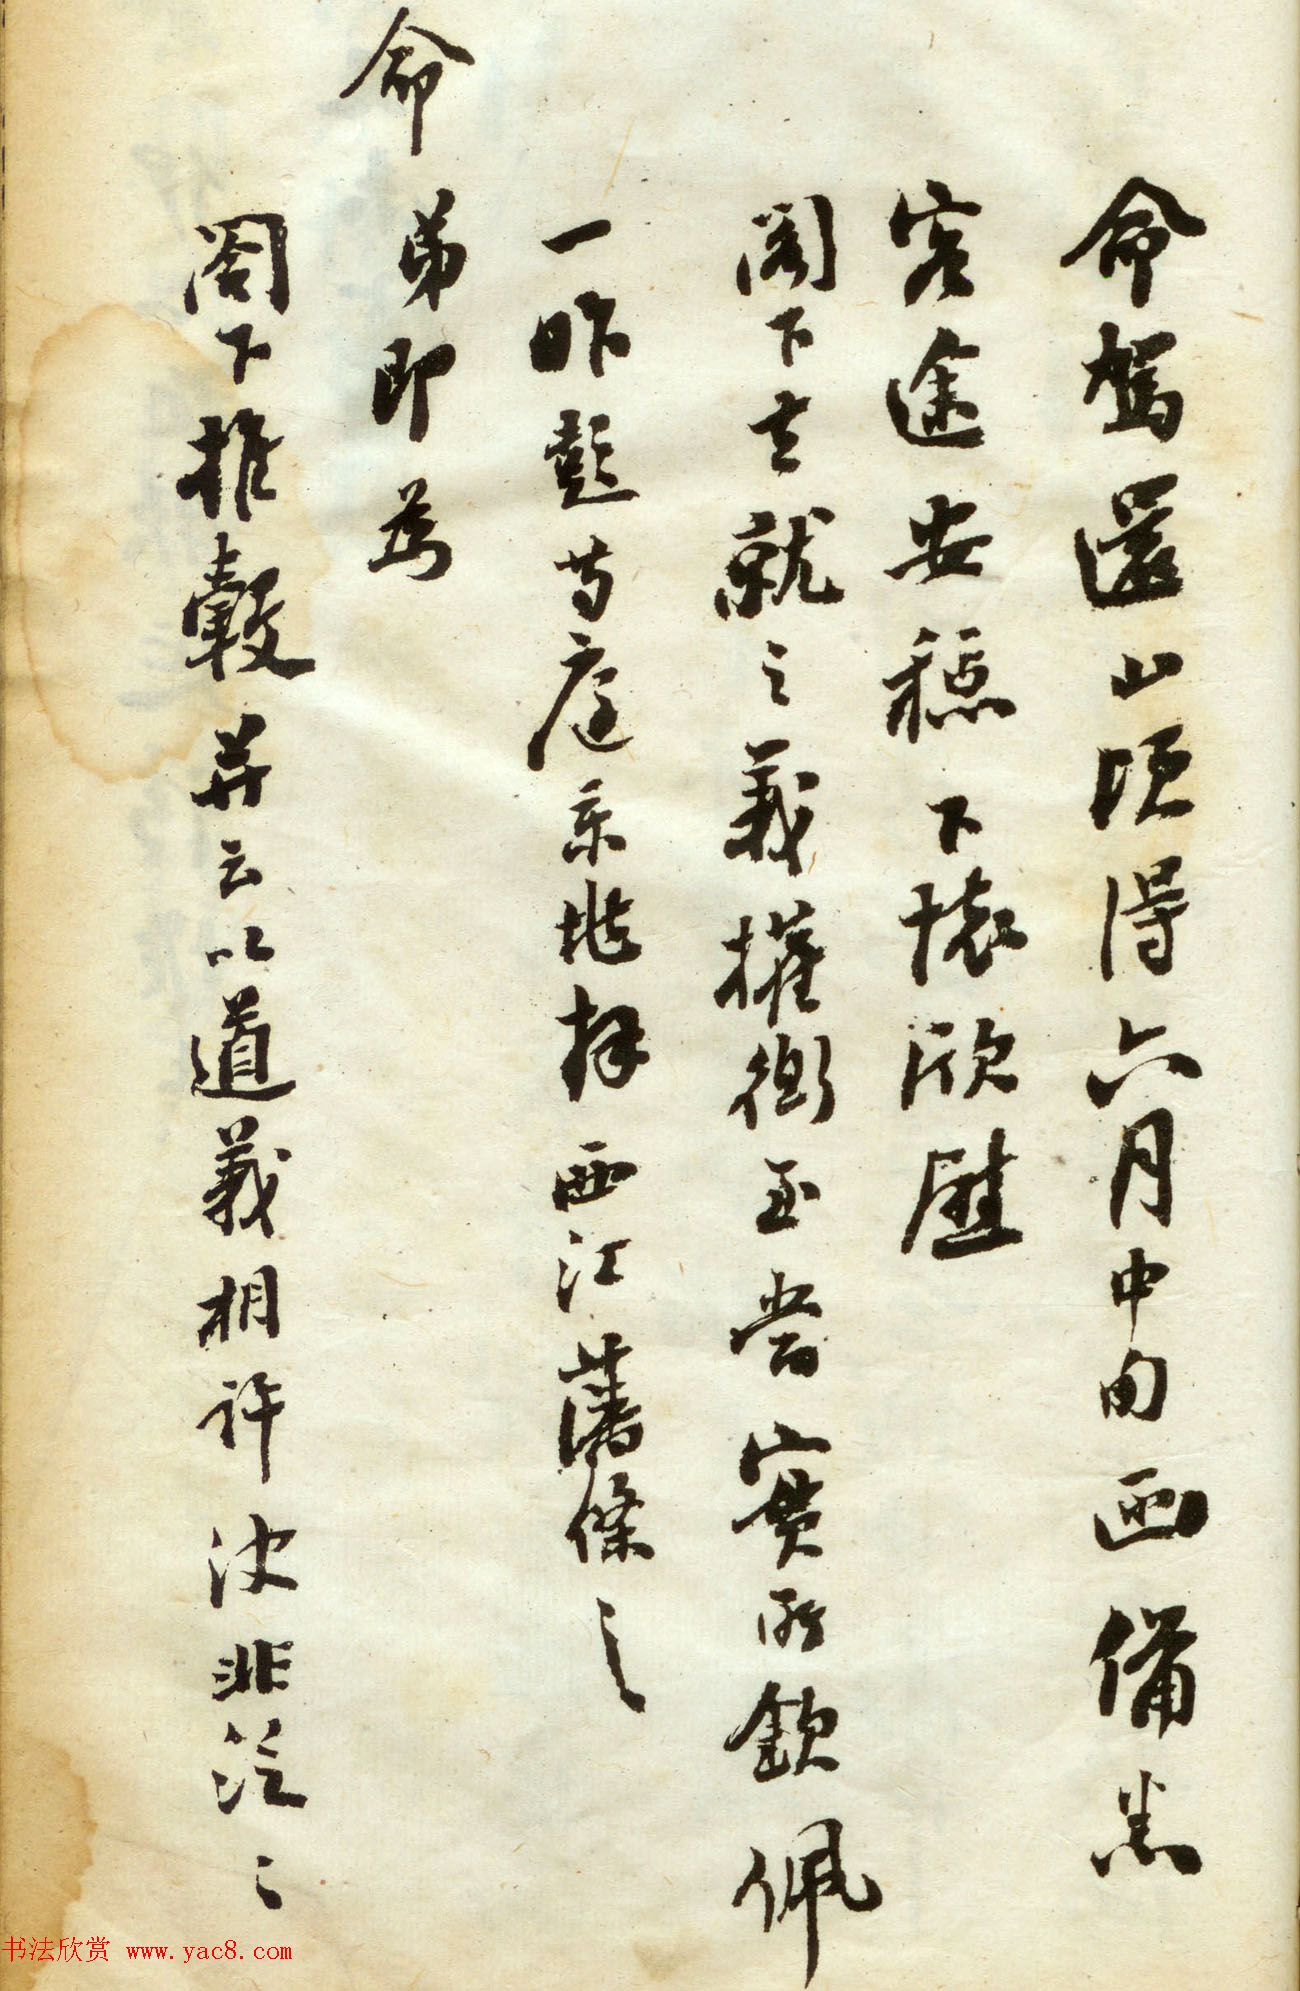 命駕還山頃得六月中旬函備悉
客途安穩下懷欣慰
閣下去就之義權衡至當實所欽佩
一昨彭芍庭京堂拜西江藩條之
命弟即為
閣下推轂并云以道義相許決非泛泛
书法欣赏 www.yac8.com